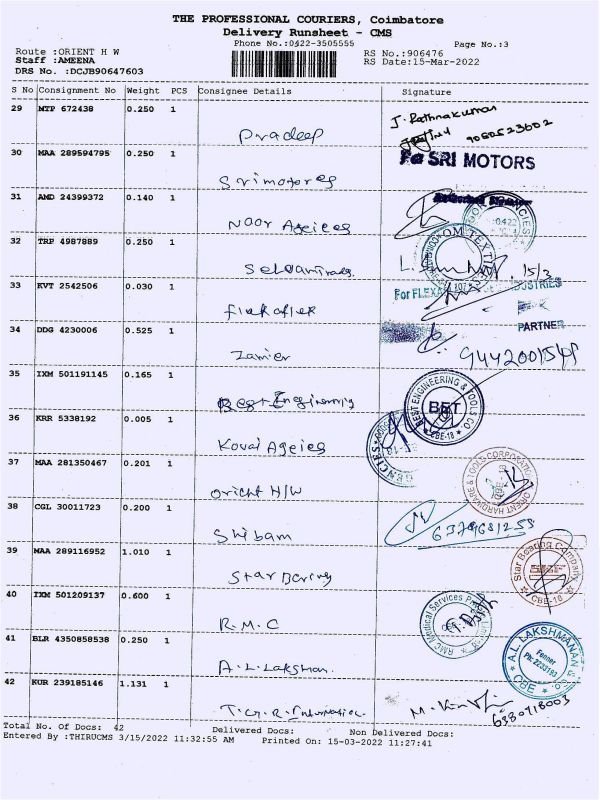 THE PROFESSIONAL COURIERS, Coimbatore
Delivery Runsheet - CMS
Phone No.:0422-3505555 Page No.:3
Route :ORIENT H W RS No.:906476
Staff :AMEENA RS Date:15-Mar-2022
DRS No. :DCJB90647603
S No Consignment No Weight PCS Consignee Details Signature
29 MTP 672438 0.250 1
Pradeep
30 MAA 289594795 0.250 1
SRI MOTORS
Srimotores
31 AMD 24399372 0.140 1
Noor Ageices
32 TRP 4987889 0.250 1
15/3
33 KVT 2542506 0.030 1
For FLEXA INDUSTRIES
PARTNER
34 DDG 4230006 0.525 1
Zamier
35 IXM 501191145 0.165 1
Best Engineering
BEST ENGINEERING & TOOLS CO
BET
CBE-18
36 KRR 5338192 0.005 1
Kovai Ageies
37 MAA 281350467 0.201 1
Orient H/W
ORIENT HARDWARE & TOOLS CORPORATION
38 CGL 30011723 0.200 1
6379681255
Shibam
39 MAA 289116952 1.010 1
Star Bering
Star Bearing Company
SKF
CBE-18
40 IXM 501209137 0.600 1
R.M.C
RMC Medical Services
41 BLR 4350858538 0.250 1
A.L. Lakshman.
A.L. LAKSHMANAN & Co.
Fenner
Ph: 2233193
CBE
42 KUR 239185146 1.131 1
6380718003
Total No. Of Docs: 42 Delivered Docs: Non Delivered Docs:
Entered By :THIRUCMS 3/15/2022 11:32:55 AM Printed On: 15-03-2022 11:27:41